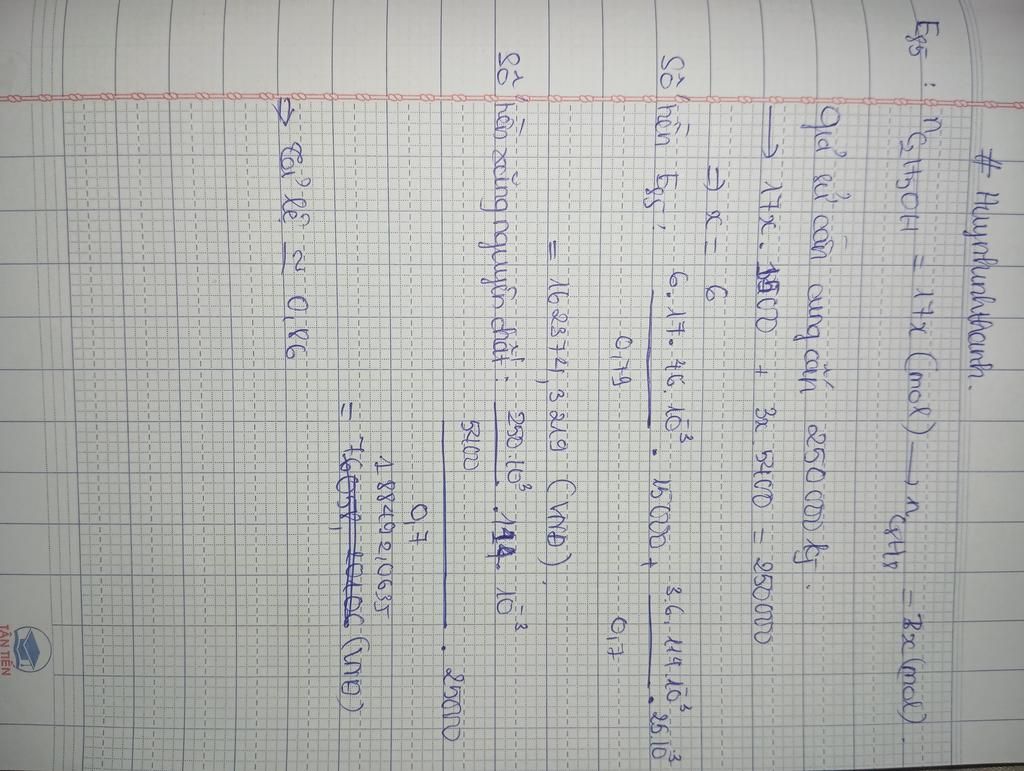 # Huynhminhthanh.
E85 : nC2H5OH = 17x (mol) → nC8H18 = 3x (mol).
Giả sử cần cung cấp 250000 kJ.
→ 17x . 1500 + 3x . 5400 = 250000
⇒ x = 6
Số tiền E85: 6.17.46.10⁻³ / 0,79 . 15000 + 3.6.114.10⁻³ / 0,7 . 25.10³
= 162374,3219 (VNĐ).
Số tiền xăng nguyên chất : 250.10³ / 5400 . 114 . 10⁻³ / 0,7 . 25000
188492,0635
= (VNĐ)
⇒ Tỉ lệ ≈ 0,86
TÂN TIẾN